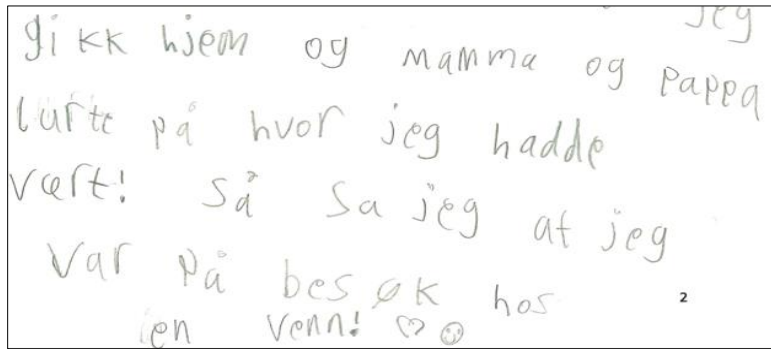 jeg
gikk hjem og mamma og pappa
lurte på hvor jeg hadde
vært! Så sa jeg at jeg
var på besøk hos
en venn! ♡☺
2